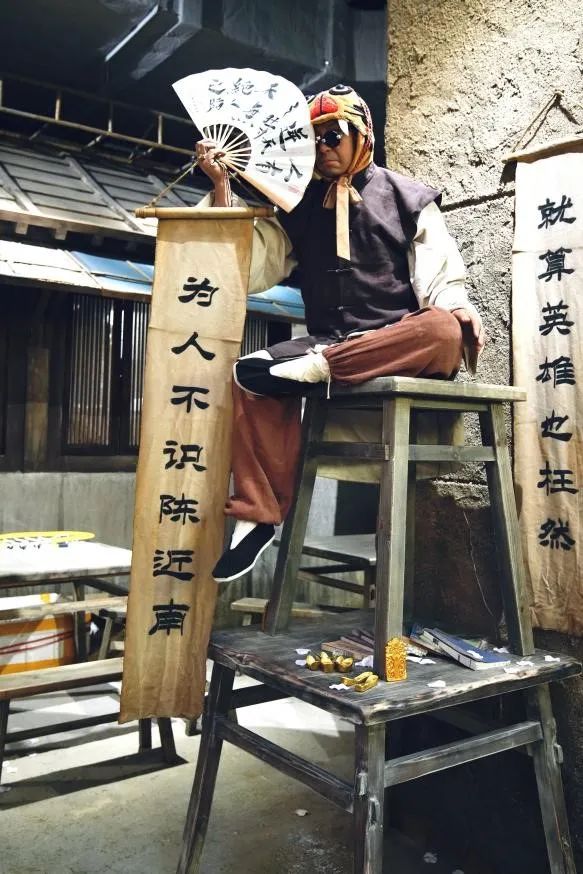 为人不识陈近南
就算英雄也枉然